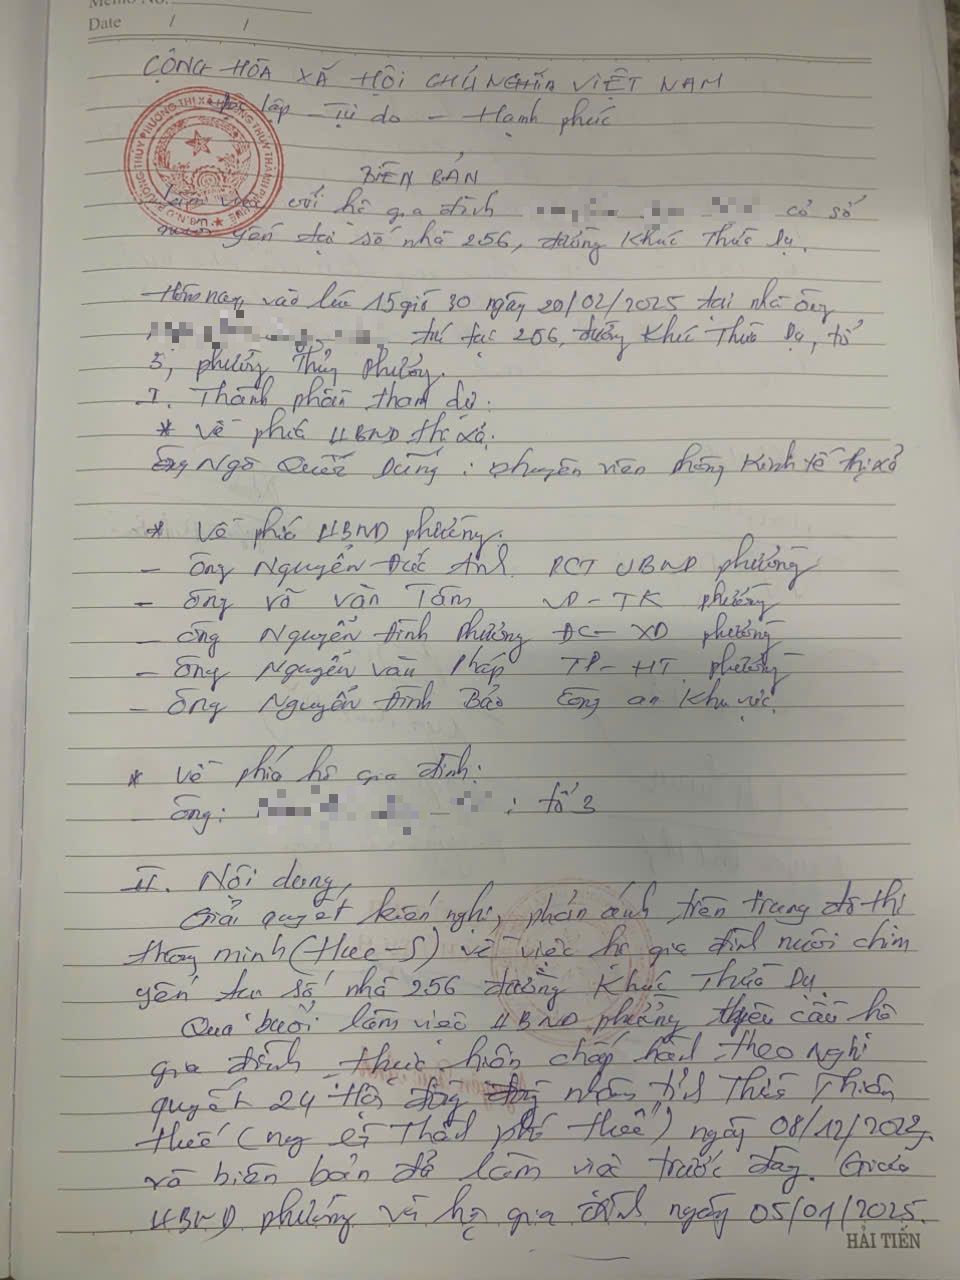 Memo No.
Date / /
CỘNG HÒA XÃ HỘI CHỦ NGHĨA VIỆT NAM
Độc lập - Tự do - Hạnh phúc
BIÊN BẢN
Làm việc với hộ gia đình có số
nuôi yến tại số nhà 256, đường Khúc Thừa Dụ.
Hôm nay, vào lúc 15 giờ 30 ngày 20/02/2025 tại nhà ông
trú tại 256, đường Khúc Thừa Dụ, tổ
3, phường Thủy Phương.
I. Thành phần tham dự:
* Về phía UBND thị xã:
Ông Ngô Quốc Dũng : chuyên viên phòng Kinh tế thị xã
* Về phía UBND phường:
- ông Nguyễn Đức Anh PCT UBND phường
- ông Võ Văn Tám VP-TK phường
- ông Nguyễn Đình Phương ĐC-XD phường
- ông Nguyễn Văn Pháp TP-HT phường
- ông Nguyễn Đình Bảo Công an Khu vực
* Về phía hộ gia đình:
- ông: : tổ 3
II. Nội dung
Giải quyết kiến nghị, phản ánh trên trung đô thị
thông minh (Hue-S) về việc hộ gia đình nuôi chim
yến tại số nhà 256 đường Khúc Thừa Dụ
Qua buổi làm việc UBND phường yêu cầu hộ
gia đình thực hiện chấp hành theo Nghị
quyết 24 Hội đồng nhân tỉnh Thừa Thiên
Huế (nay là Thành phố Huế) ngày 08/12/2022
và biên bản đã làm việc trước đây. Giữa
UBND phường và hộ gia đình ngày 05/01/2025.
HẢI TIẾN